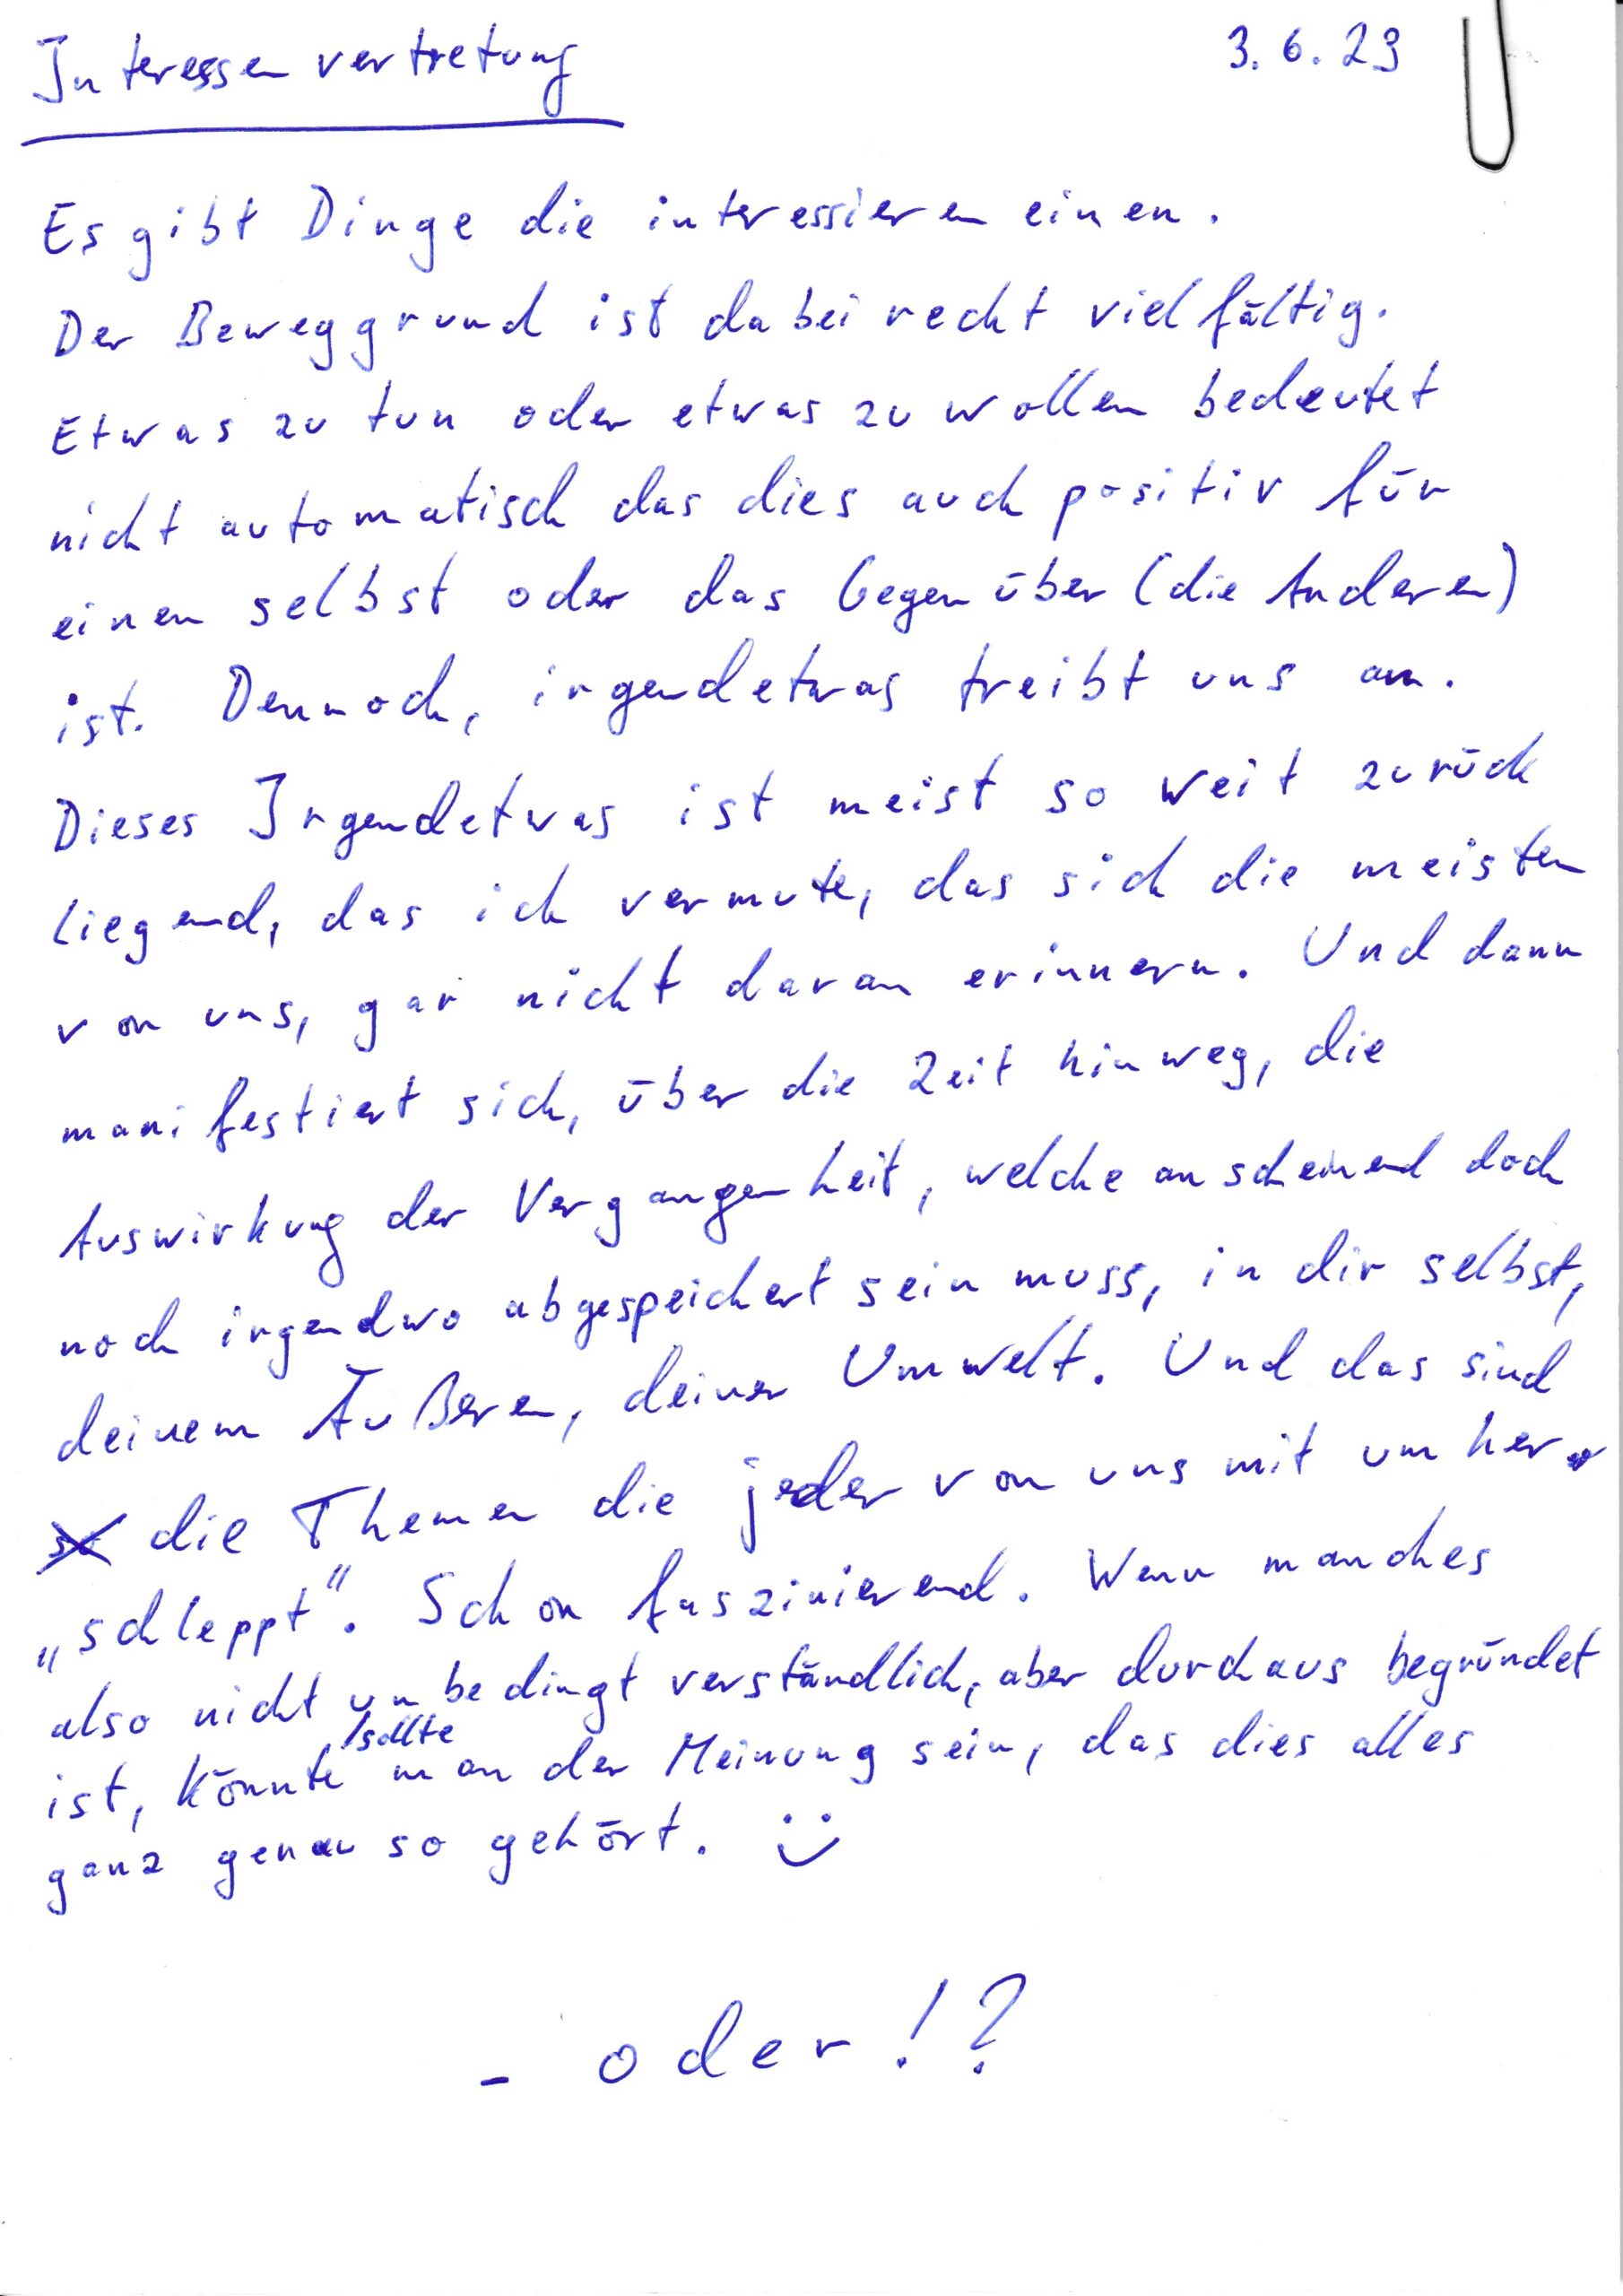 Interessenvertretung 3.6.23
Es gibt Dinge die interessieren einen.
Der Beweggrund ist dabei recht vielfältig.
Etwas zu tun oder etwas zu wollen bedeutet
nicht automatisch das dies auch positiv für
einen selbst oder das Gegenüber (die Anderen)
ist. Dennoch, irgendetwas treibt uns an.
Dieses Irgendetwas ist meist so weit zurück
liegend, das ich vermute, das sich die meisten
von uns, gar nicht daran erinnern. Und dann
manifestiert sich, über die Zeit hinweg, die
Auswirkung der Vergangenheit, welche anscheinend doch
noch irgendwo abgespeichert sein muss, in dir selbst,
deinem Äußeren, deiner Umwelt. Und das sind
die Themen die jeder von uns mit umher
„schleppt“. Schon faszinierend. Wenn manches
also nicht unbedingt verständlich, aber durchaus begründet
ist, könnte /sollte man der Meinung sein, das dies alles
ganz genau so gehört. ü
- oder!?